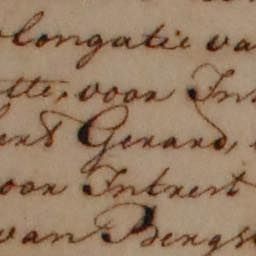 olongatie va
tte, voor In
ert Gerard,
voor Intrest
van Bergs